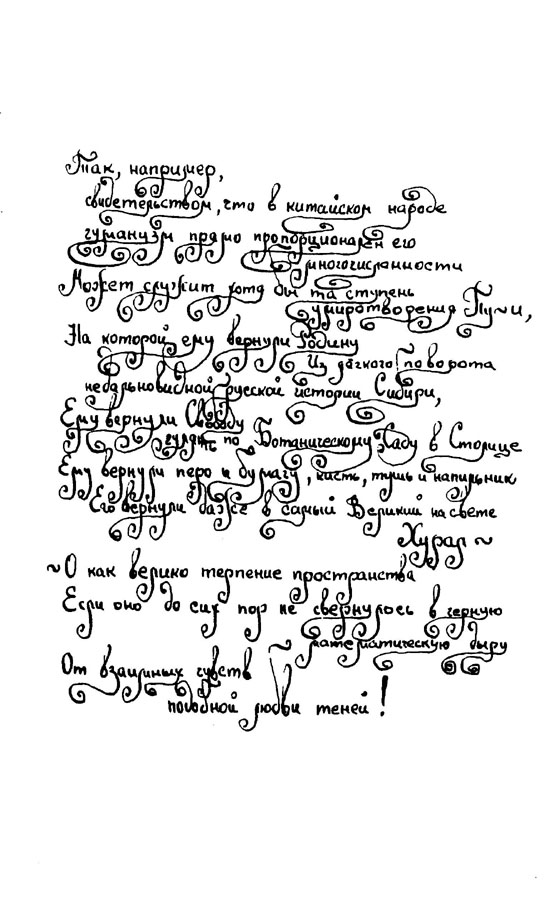 Так, например,
свидетельством, что в китайском народе
гуманизм прямо пропорционален его
многочисленности
Может служит хотя бы та ступень
умиротворения Пу-И,
На которой ему вернули Родину
Из далёкого поворота
недальновидной русской истории Сибири,
Ему вернули Свободу
гулять по Ботаническому Саду в Столице
Ему вернули перо и бумагу, кисть, тушь и напильник
Его вернули даже в самый Великий на свете
Хурал ~
~ О как велико терпение пространства
Если оно до сих пор не свернулось в черную
математическую дыру
От взаимных чувств ~
подобной любви теней!